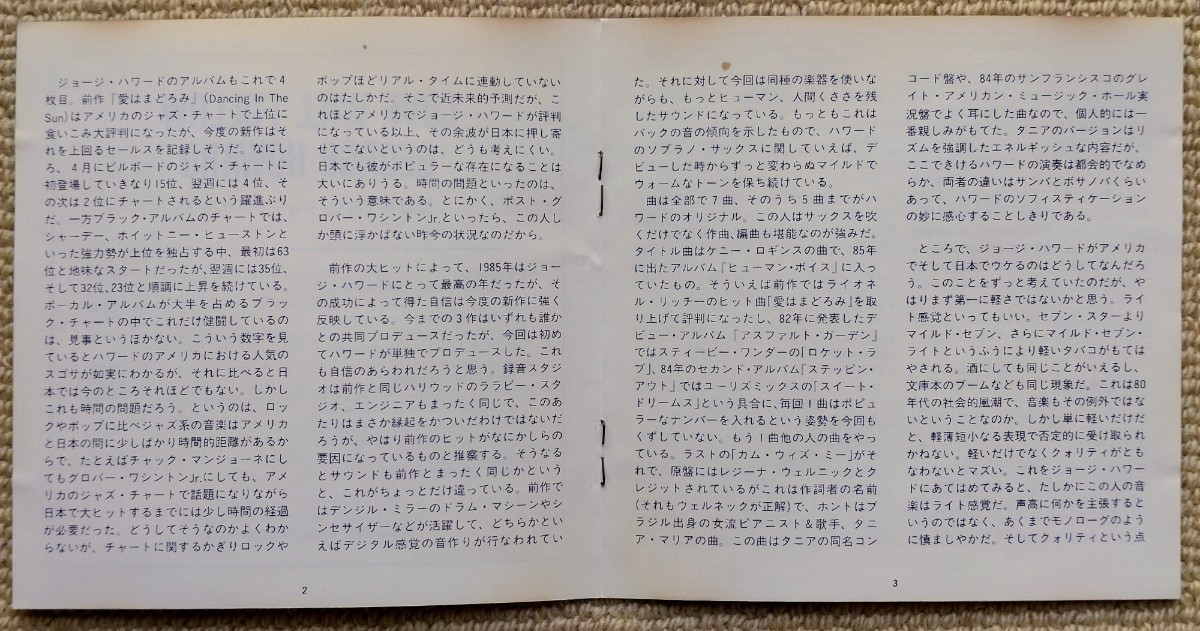 ジョージ・ハワードのアルバムもこれで4
枚目。前作『愛はまどろみ』(Dancing In The
Sun)はアメリカのジャズ・チャートで上位に
食いこみ大評判になったが、今度の新作はそ
れを上回るセールスを記録しそうだ。なにし
ろ、4月にビルボードのジャズ・チャートに
初登場していきなり15位、翌週には4位、そ
の次は2位にチャートされるという躍進ぶり
だ。一方ブラック・アルバムのチャートでは、
シャーデー、ホイットニー・ヒューストンと
いった強力勢が上位を独占する中、最初は63
位と地味なスタートだったが、翌週には35位、
そして32位、23位と順調に上昇を続けている。
ボーカル・アルバムが大半を占めるブラッ
ク・チャートの中でこれだけ健闘しているの
は、見事というほかない。こういう数字を見
ているとハワードのアメリカにおける人気の
スゴサが如実にわかるが、それに比べると日
本では今のところそれほどでもない。しかし
これも時間の問題だろう。というのは、ロッ
クやポップに比べジャズ系の音楽はアメリカ
と日本の間に少しばかり時間的距離があるか
らで、たとえばチャック・マンジョーネにし
てもグロバー・ワシントンJr.にしても、アメ
リカのジャズ・チャートで話題になりながら
日本で大ヒットするまでには少し時間の経過
が必要だった。どうしてそうなのかよくわか
らないが、チャートに関するかぎりロックや
ポップほどリアル・タイムに連動していない
のはたしかだ。そこで近未来的予測だが、こ
れほどアメリカでジョージ・ハワードが評判
になっている以上、その余波が日本に押し寄
せてこないというのは、どうも考えにくい。
日本でも彼がポピュラーな存在になることは
大いにありうる。時間の問題といったのは、
そういう意味である。とにかく、ポスト・グ
ロバー・ワシントンJr.といったら、この人し
か頭に浮かばない昨今の状況なのだから。
前作の大ヒットによって、1985年はジョー
ジ・ハワードにとって最高の年だったが、そ
の成功によって得た自信は今度の新作に強く
反映している。今までの3作はいずれも誰か
との共同プロデュースだったが、今回は初め
てハワードが単独でプロデュースした。これ
も自信のあらわれだろうと思う。録音スタジ
オは前作と同じハリウッドのララビー・スタ
ジオ、エンジニアもまったく同じで、このあ
たりはまさか縁起をかついだわけではないだ
ろうが、やはり前作のヒットがなにかしらの
要因になっているものと推察する。そうなる
とサウンドも前作とまったく同じかという
と、これがちょっとだけ違っている。前作で
はデンジル・ミラーのドラム・マシーンやシ
ンセサイザーなどが活躍して、どちらかとい
えばデジタル感覚の音作りが行なわれてい
2
た。それに対して今回は同種の楽器を使いな
がらも、もっとヒューマン、人間くささを残
したサウンドになっている。もっともこれは
バックの音の傾向を示したもので、ハワード
のソプラノ・サックスに関していえば、デ
ビューした時からずっと変わらぬマイルドで
ウォームなトーンを保ち続けている。
曲は全部で7曲、そのうち5曲までがハ
ワードのオリジナル。この人はサックスを吹
くだけでなく作曲、編曲も堪能なのが強みだ。
タイトル曲はケニー・ロギンスの曲で、85年
に出たアルバム『ヒューマン・ボイス』に入っ
ていたもの。そういえば前作ではライオネ
ル・リッチーのヒット曲「愛はまどろみ」を取
り上げて評判になったし、82年に発表したデ
ビュー・アルバム『アスファルト・ガーデン』
ではスティービー・ワンダーの「ロケット・ラ
ブ」、84年のセカンド・アルバム『ステッピン・
アウト』ではユーリズミックスの「スイート・
ドリームス」という具合に、毎回1曲はポピュ
ラーなナンバーを入れるという姿勢を今回も
くずしていない。もう1曲他の人の曲をやっ
ている。ラストの「カム・ウィズ・ミー」がそ
れで、原盤にはレジーナ・ウェルニックとク
レジットされているがこれは作詞者の名前
(それもウェルネックが正解)で、ホントはブ
ラジル出身の女流ピアニスト&歌手、タニ
ア・マリアの曲。この曲はタニアの同名コン
コード盤や、84年のサンフランシスコのグレ
イト・アメリカン・ミュージック・ホール実
況盤でよく耳にした曲なので、個人的には一
番親しみがもてた。タニアのバージョンはリ
ズムを強調したエネルギッシュな内容だが、
ここできけるハワードの演奏は都会的でなめ
らか、両者の違いはサンバとボサノバくらい
あって、ハワードのソフィスティケーション
の妙に感心することしきりである。
ところで、ジョージ・ハワードがアメリカ
でそして日本でウケるのはどうしてなんだろ
う。このことをずっと考えていたのだが、や
はりまず第一に軽さではないかと思う。ライ
ト感覚といってもいい。セブン・スターより
マイルド・セブン、さらにマイルド・セブン・
ライトというふうにより軽いタバコがもては
やされる。酒にしても同じことがいえるし、
文庫本のブームなども同じ現象だ。これは80
年代の社会的風潮で、音楽もその例外ではな
いということなのか。しかし単に軽いだけだ
と、軽薄短小なる表現で否定的に受け取られ
かねない。軽いだけでなくクォリティがとも
なわないとマズい。これをジョージ・ハワー
ドにあてはめてみると、たしかにこの人の音
楽はライト感覚だ。声高に何かを主張すると
いうのではなく、あくまでモノローグのよう
に慎ましやかだ。そしてクォリティという点
3